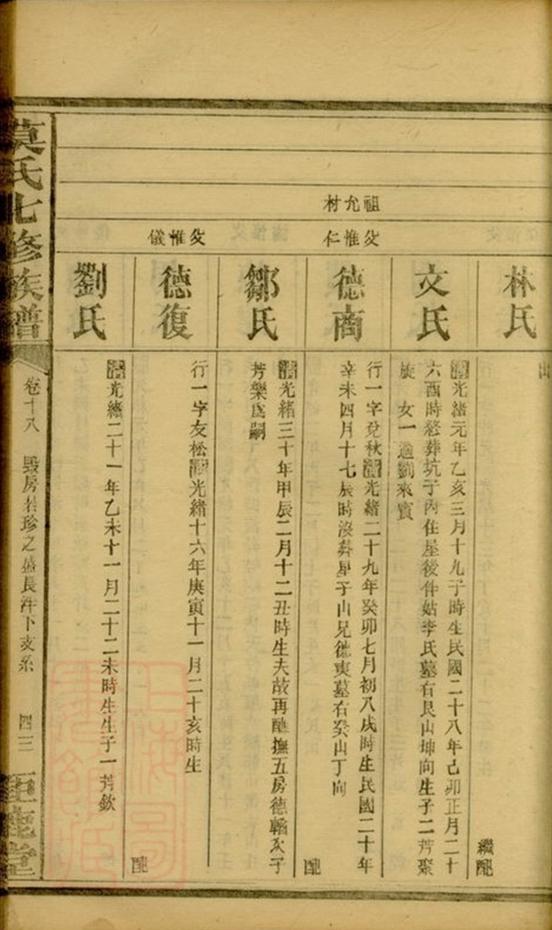 林氏
繼配
文氏
清光緒元年乙亥三月十九子時生民國二十八年己卯正月二十
六酉時歿葬坑子內住屋後伴姑李氏墓右艮山坤向生子二芳聚
女一適劉來賓
祖允材
父惟仁
德商
行一字兌秋清光緒二十九年癸卯七月初八戌時生民國二十年
辛未四月十七辰時沒葬犀子山兄德東墓右癸山丁向
配
鄒氏
清光緒三十年甲辰二月十二丑時生夫故再醮撫五房德輶次子
芳樂為嗣
父惟儀
德復
行一字友松清光緒十六年庚寅十一月二十亥時生
配
劉氏
清光緒二十一年乙未十一月二十二未時生生子一芳欽
莫氏七修族譜
卷十八 毀房若珍之盛長洊下支系 四三
鉅鹿堂